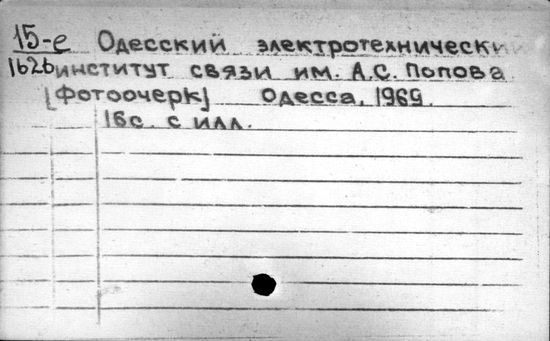 15-е Одесский электротехнически
1626 институт связи им. А.С. Попова
[Фотоочерк] Одесса, 1969.
16с. с илл.